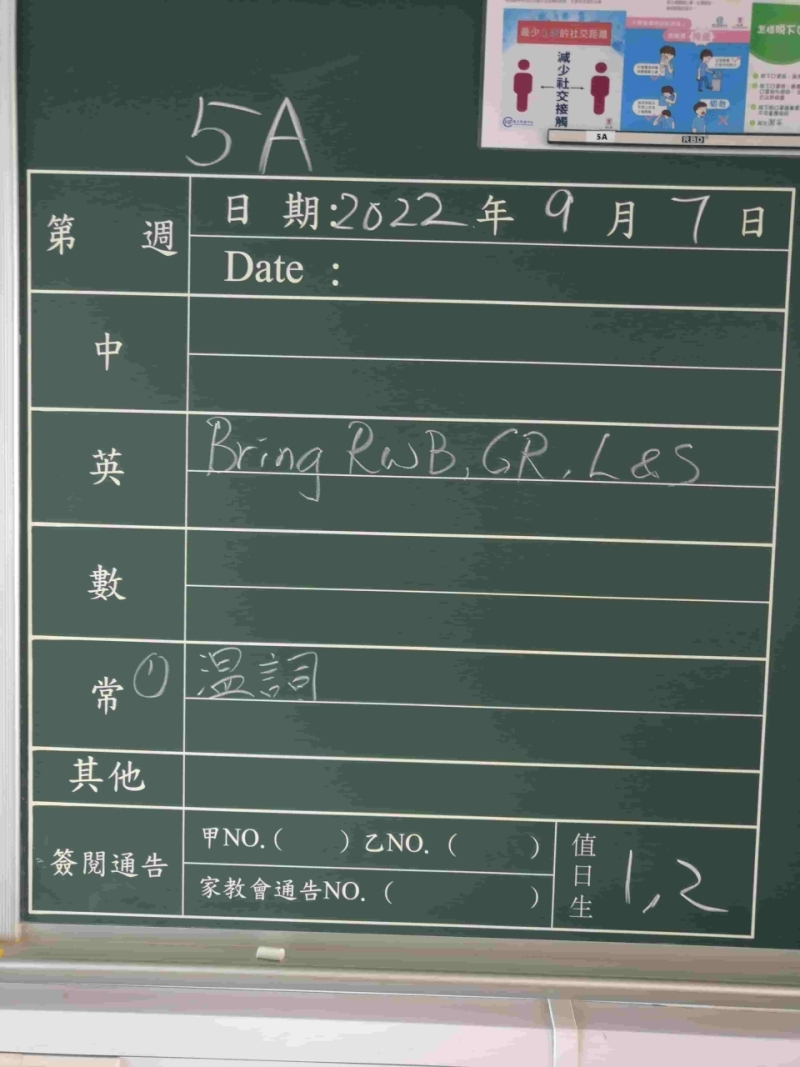 最少1.5米的社交距離
減少社交接觸
5A
RBD
5A
第 週
日 期:2022年 9月 7日
Date :
中
英
Bring RWB, GR, L&S
數
常 ①
温詞
其他
簽閱通告
甲NO.( ) 乙NO. ( )
家教會通告NO. ( )
值日生
1, 2